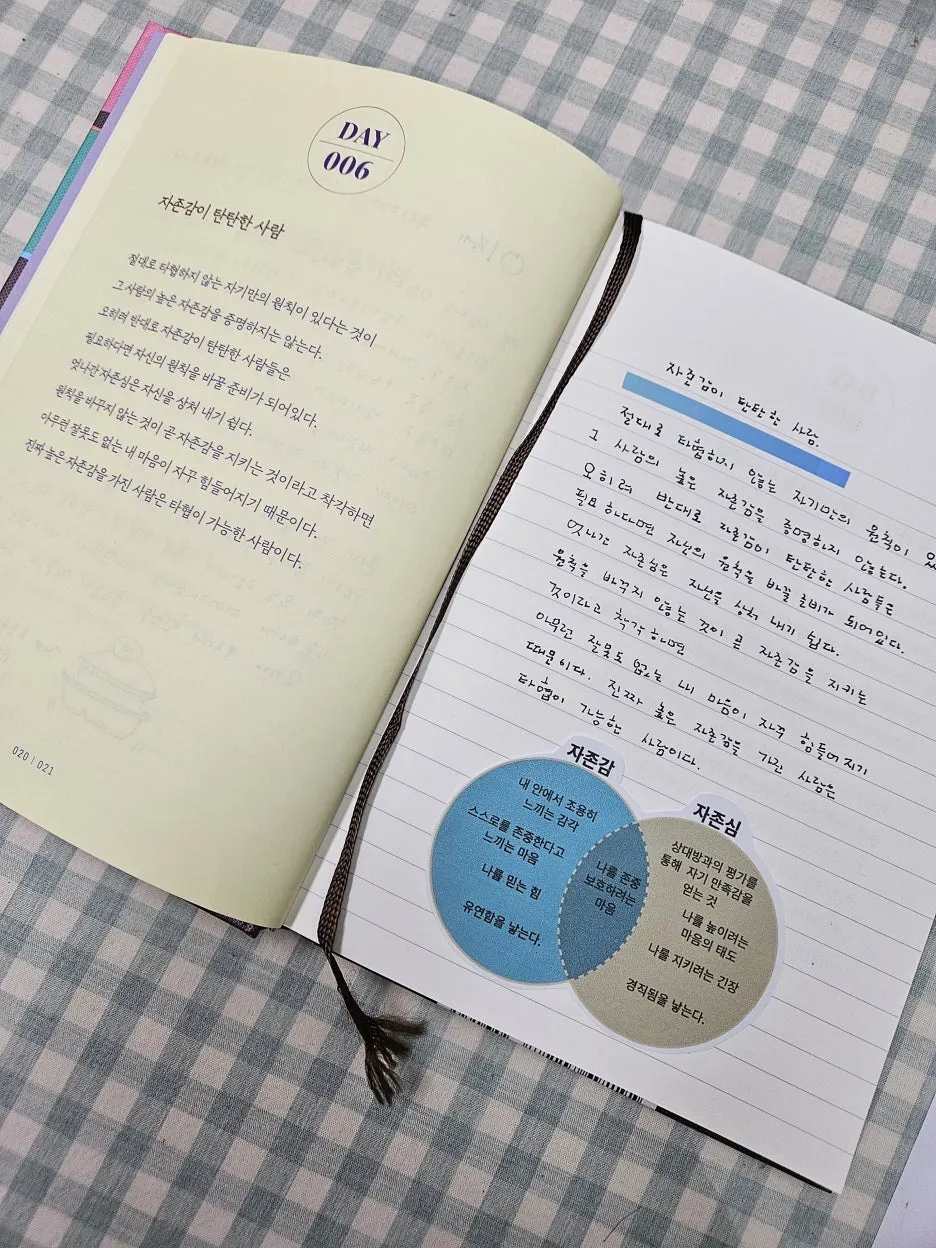 DAY
006
자존감이 탄탄한 사람
절대로 타협하지 않는 자기만의 원칙이 있다는 것이
그 사람의 높은 자존감을 증명하지는 않는다.
오히려 반대로 자존감이 탄탄한 사람들은
필요하다면 자신의 원칙을 바꿀 준비가 되어있다.
엇나간 자존심은 자신을 상처 내기 쉽다.
원칙을 바꾸지 않는 것이 곧 자존감을 지키는 것이라고 착각하면
아무런 잘못도 없는 내 마음이 자꾸 힘들어지기 때문이다.
진짜 높은 자존감을 가진 사람은 타협이 가능한 사람이다.
020 | 021
자존감이 탄탄한 사람.
절대로 타협하지 않는 자기만의 원칙이
그 사람의 높은 자존감을 증명하지 않는다.
오히려 반대로 자존감이 탄탄한 사람들은
필요하다면 자신의 원칙을 바꿀 준비가 되어있다.
엇나간 자존심은 자신을 상처 내기 쉽다.
원칙을 바꾸지 않는 것이 곧 자존감을 지키는
것이라고 착각하면
아무런 잘못도 없는 내 마음이 자꾸 힘들어지기
때문이다. 진짜 높은 자존감을 가진 사람은
타협이 가능한 사람이다.
자존감
내 안에서 조용히
느끼는 감각
스스로를 존중한다고
느끼는 마음
나를 믿는 힘
유연함을 낳는다.
나를 존중
보호하려는
마음
자존심
상대방과의 평가를
통해 자기 만족감을
얻는 것
나를 높이려는
마음의 태도
나를 지키려는 긴장
경직됨을 낳는다.